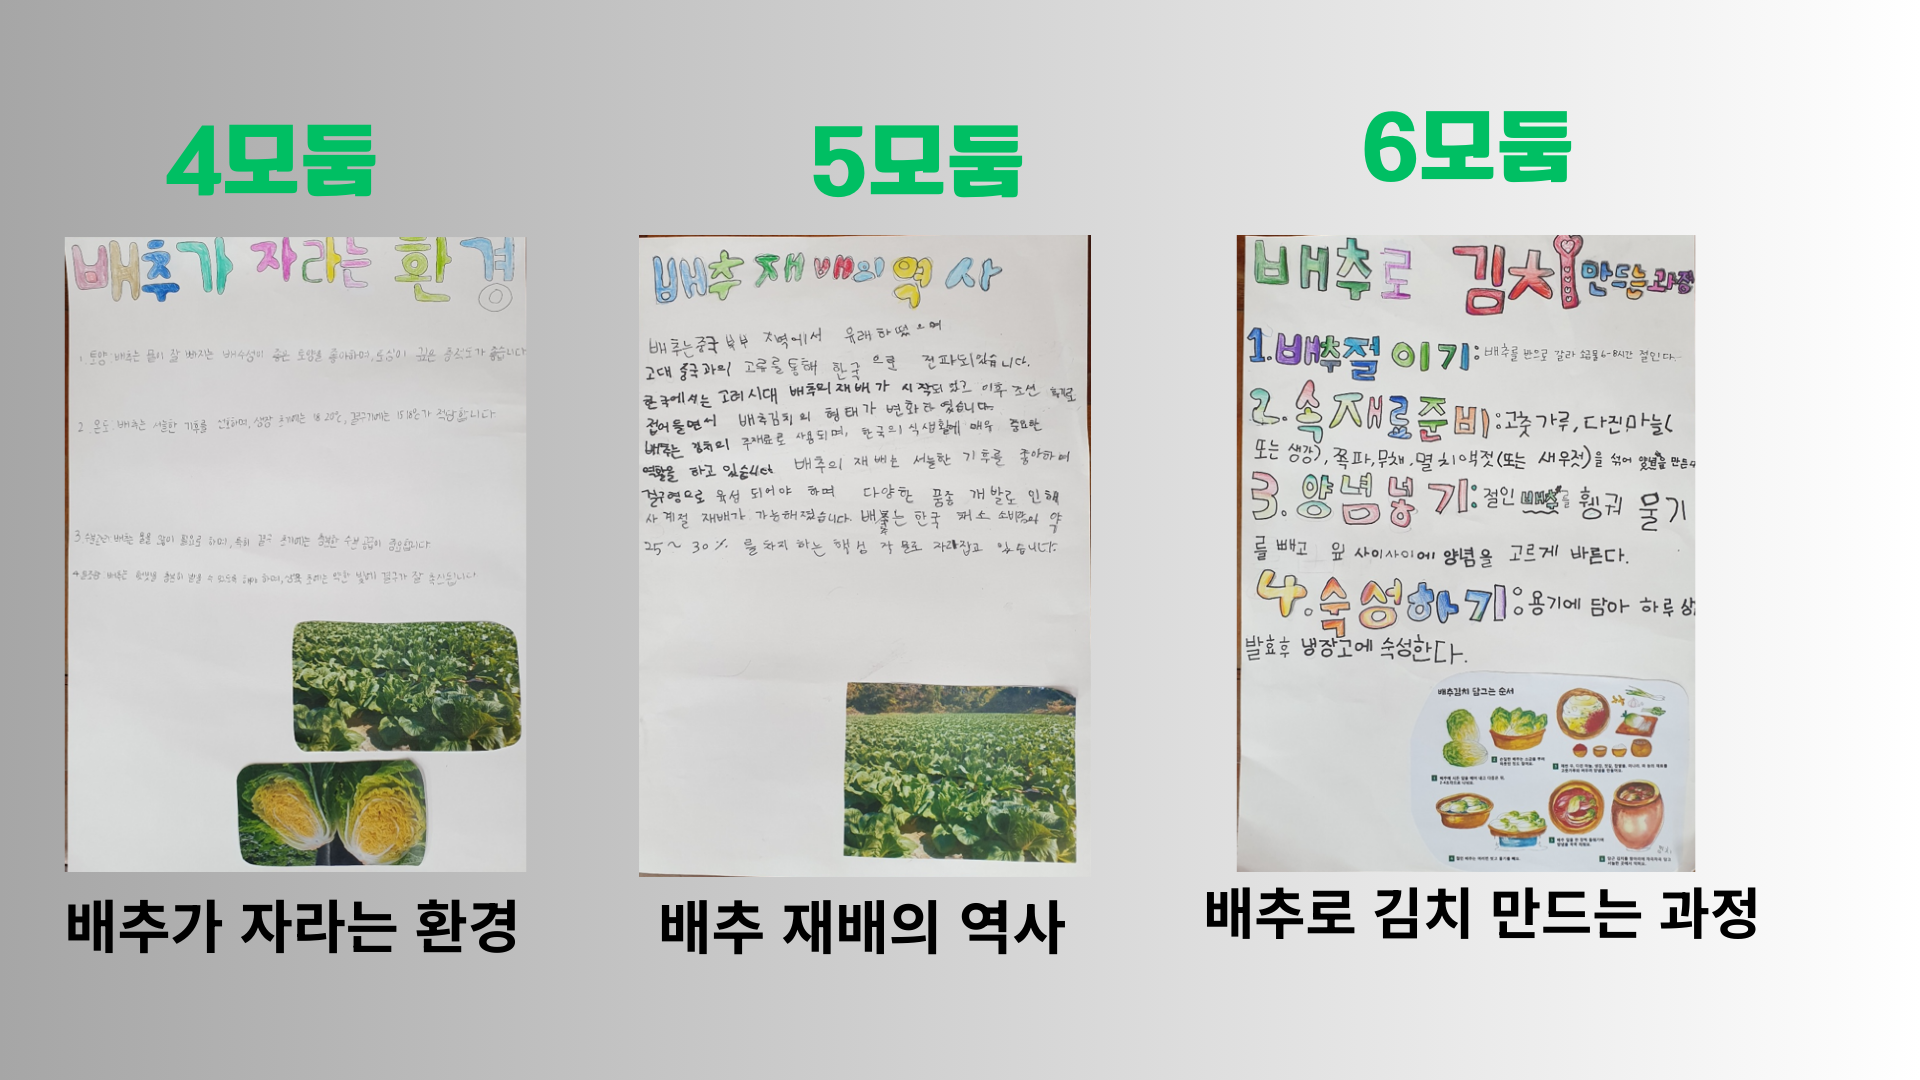 4모둠
배추가 자라는 환경
1. 토양: 배추는 물이 잘 빠지는 배수성이 좋은 토양을 좋아하며, 토심이 깊은 충적토가 좋습니다
2. 온도: 배추는 서늘한 기후를 선호하며, 생장 초기에는 18 20℃, 결구기에는 15 18℃가 적당합니다
3 배추는 물을 많이 필요로 하며, 특히 결구 초기에는 충분한 수분 공급이 중요합니다
배추가 자라는 환경
5모둠
배추 재배의 역사
배추는 중국 북부 지역에서 유래하였으며
고대 중국과의 교류를 통해 한국으로 전파되었습니다.
한국에서는 고려시대 배추의 재배가 시작되었고 이후 조선 후기로
접어들면서 배추김치의 형태가 변화하였습니다.
배추는 김치의 주재료로 사용되며, 한국의 식생활에 매우 중요한
역할을 하고 있습니다 배추의 재배는 서늘한 기후를 좋아하며
결구형으로 육성 되어야 하며 다양한 품종 개발로 인해
사계절 재배가 가능해졌습니다. 배추는 한국 채소 소비량의 약
25~30% 를 차지 하는 핵심 작물로 자리잡고 있습니다.
배추 재배의 역사
6모둠
배추로 김치 만드는 과정
1. 배추절이기: 배추를 반으로 갈라 소금물 6-8시간 절인다.
2. 속재료준비: 고춧가루, 다진마늘(
또는 생강), 쪽파, 무채, 멸치액젓(또는 새우젓)을 섞어 양념을 만든다
3. 양념넣기: 절인 배추를 헹궈 물기
를 빼고 잎 사이사이에 양념을 고르게 바른다.
4. 숙성하기: 용기에 담아 하루 상
발효후 냉장고에 숙성한다.
배추김치 담그는 순서
배추로 김치 만드는 과정